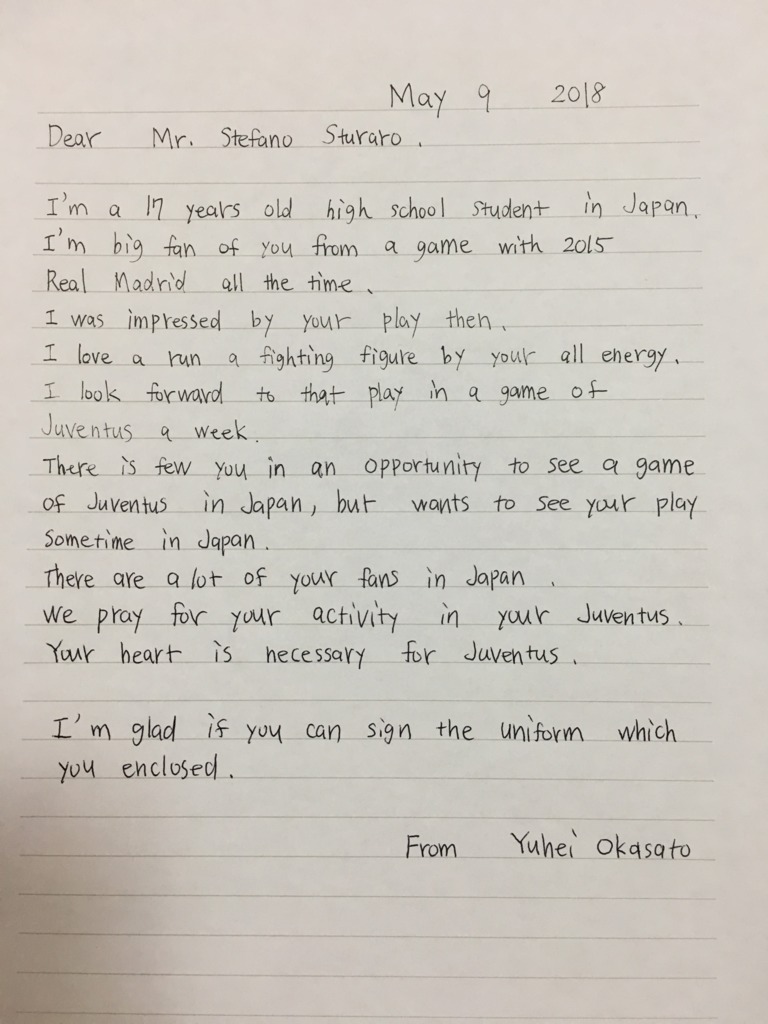 May 9 2018
Dear Mr. Stefano Sturaro.
I'm a 17 years old high school student in Japan.
I'm big fan of you from a game with 2015
Real Madrid all the time.
I was impressed by your play then.
I love a run a fighting figure by your all energy.
I look forward to that play in a game of
Juventus a week.
There is few you in an opportunity to see a game
of Juventus in Japan, but wants to see your play
sometime in Japan.
There are a lot of your fans in Japan.
We pray for your activity in your Juventus.
Your heart is necessary for Juventus.
I'm glad if you can sign the uniform which
you enclosed.
From Yuhei Okasato